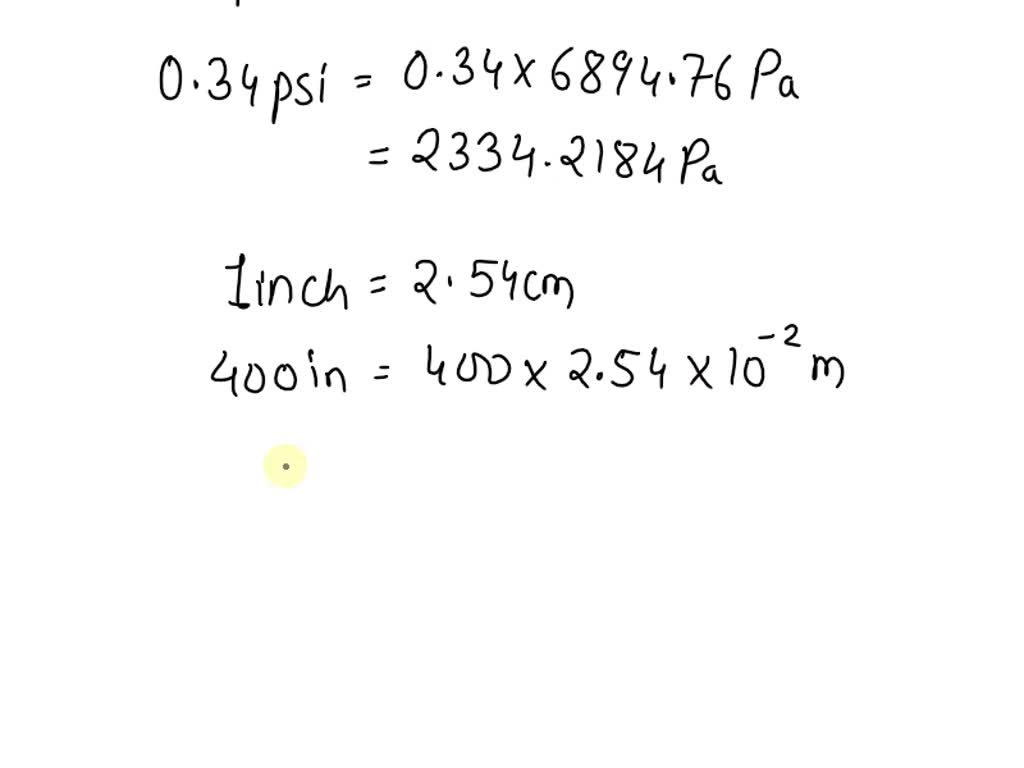 0.34psi = 0.34 x 6894.76 Pa
= 2334.2184 Pa
1inch = 2.54cm
400in = 400 x 2.54 x 10⁻² m